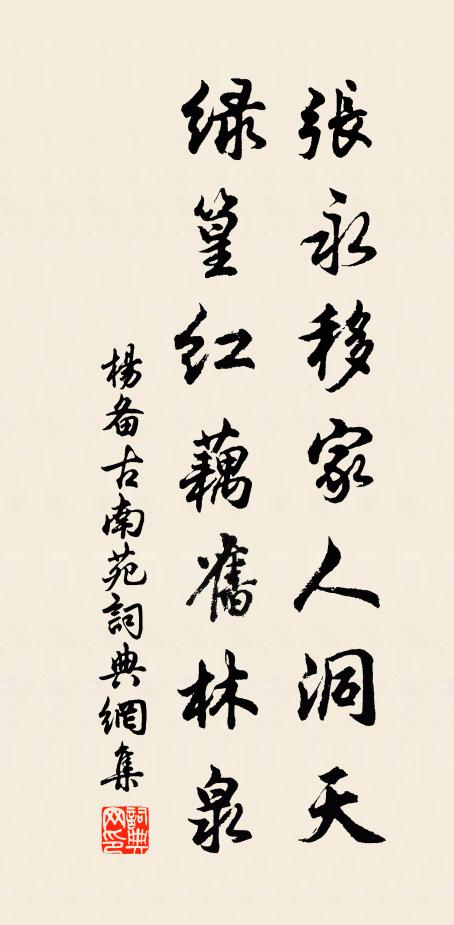 張永移家人洞天
綠篁红藕舊林泉
楊备古南苑詞典網集
詞典網印